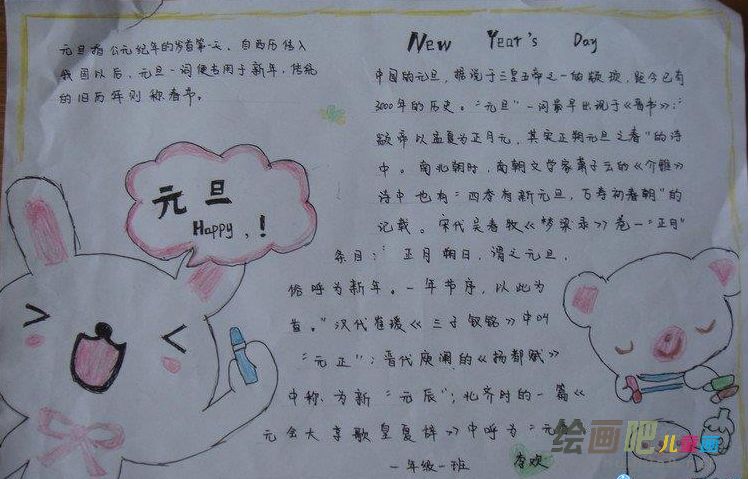 元旦指公元纪年的岁首第一天。自西历传入
我国以后,元旦一词便专用于新年,传统
的旧历年则称春节。
New Year's Day
中国的元旦,据说于三皇五帝之一的颛顼,距今已有
3000年的历史。"元旦"一词最早出现于《晋书》:"
颛帝以孟夏为正月元,其实正朔元旦之春"的诗
中。南北朝时,南朝文学家萧子云的《介雅》
诗中也有"四季有新元旦,万寿初春朝"的
记载。宋代吴春牧《梦梁录》卷一"正月"
条目:"正月朔日,谓之元旦,
俗呼为新年。一年节序,以此为
首。"汉代崔瑗《三子钗铭》中叫
"元正";晋代庾阐的《扬都赋》
中称为新"元辰";北齐时的一篇《
元会大享歌皇夏辞》中呼为"元
元旦
Happy,!
一年级一班 李欢
绘画吧儿童画